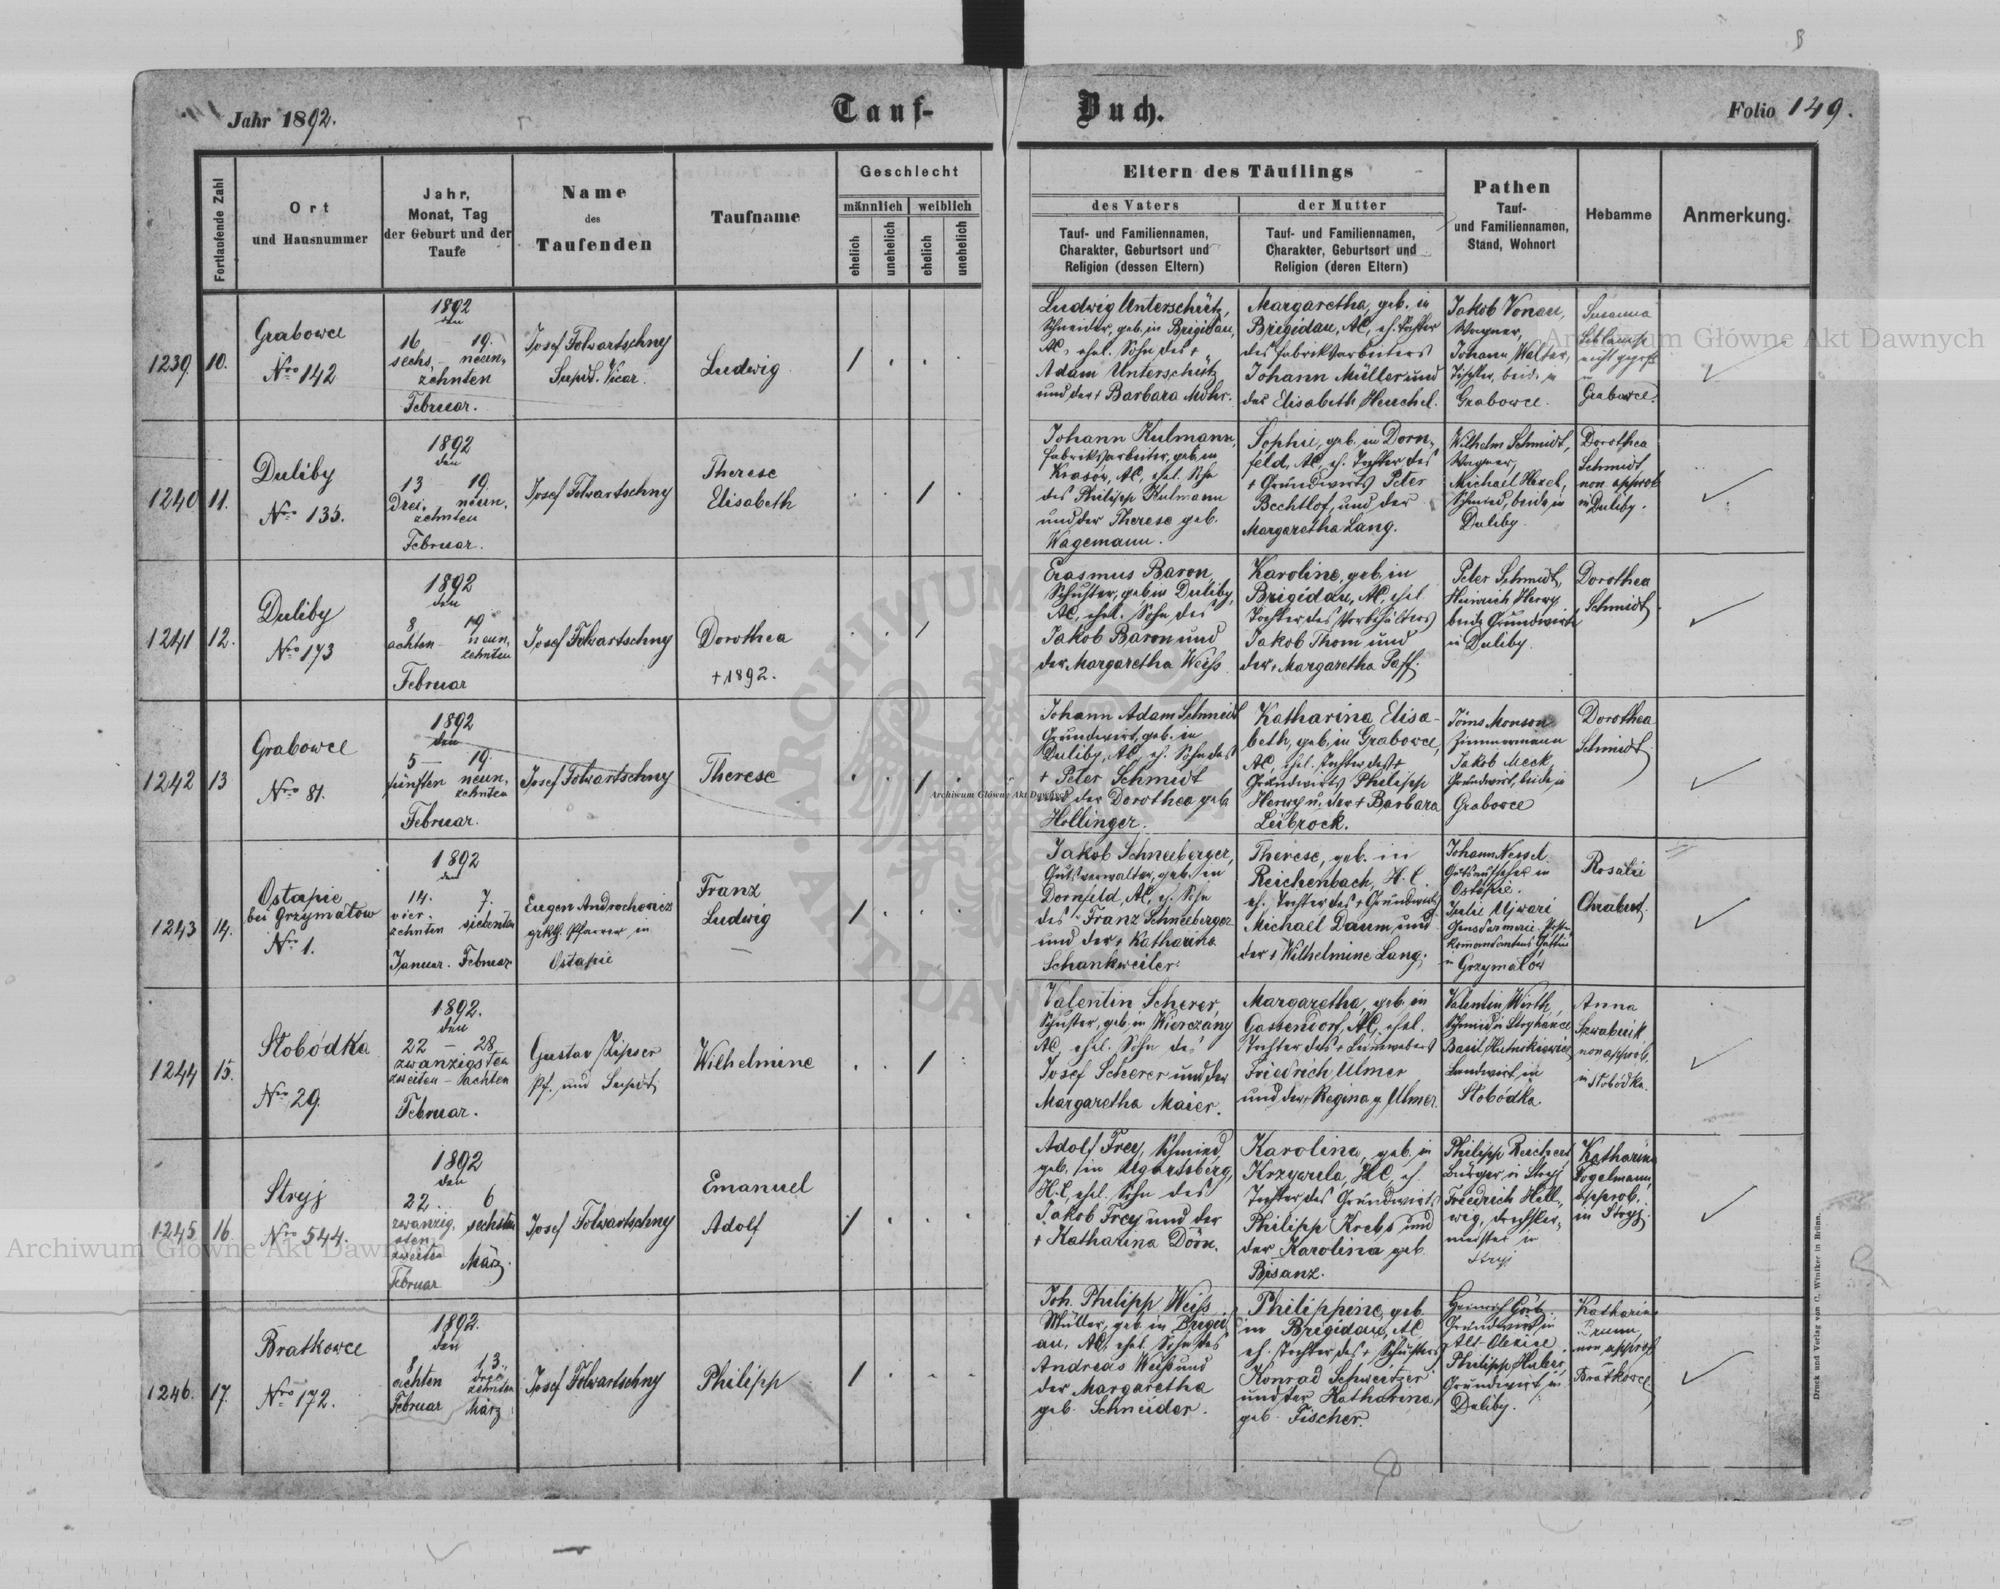 Jahr 1892.
Tauf-
Buch.
Folio 149.
Fortlaufende Zahl
Ort
und Hausnummer
Jahr,
Monat, Tag
der Geburt und der
Taufe
Name
des
Taufenden
Taufname
Geschlecht
männlich
weiblich
ehelich
unehelich
ehelich
unehelich
Eltern des Täuflings
des Vaters
Tauf- und Familiennamen,
Charakter, Geburtsort und
Religion (dessen Eltern)
der Mutter
Tauf- und Familiennamen,
Charakter, Geburtsort und
Religion (deren Eltern)
Pathen
Tauf-
und Familiennamen,
Stand, Wohnort
Hebamme
Anmerkung.
1239 10.
Grabowce
Nro 142
1892
den
16 - 19.
sechs, - neun,
zehnten
Februar.
Josef Folwartschny
Supdt. Vicar.
Ludwig
Ludwig Unterschütz,
Schneider, geb. in Brigidau,
AC, ehel. Sohn des +
Adam Unterschütz
und der + Barbara Mohr.
Margaretha, geb. in
Brigidau, AC, eh. Tochter
des Fabriksarbeiters
Johann Müller und
der Elisabeth Heuchel.
Jakob Vonau,
Wagner,
Johann Walter,
Tischler, beide in
Grabowce.
Susanna
nicht geprft
in
Grabowce.
1240 11.
Duliby
Nro 135.
1892
den
13 - 19.
Drei, - neun,
zehnten
Februar.
Josef Folwartschny
Therese
Elisabeth
Johann Kulmann,
Fabriksarbeiter, geb. in
AC, ehel. Sohn
des Philipp Kulmann
und der Therese geb.
Wagemann.
Sophie, geb. in Dorn,
feld, AC, eh. Tochter des
+ Grundwirts Peter
Bechtlof, und der
Margaretha Lang.
Wilhelm Schmidt,
Wagner,
Michael Hexel,
Schmied, beide in
Duliby.
Dorothea
Schmidt,
non approb
in Duliby.
1241 12.
Duliby
Nro 173
1892
den
8. 19.
achten - neun,
zehnten
Februar
Josef Folwartschny
Dorothea
+ 1892.
Erasmus Baron,
Schuster, geb. in Duliby,
AC, ehel. Sohn des
Jakob Baron und
der Margaretha Weiss
Karoline, geb. in
Brigidau, AC, ehel.
Tochter des
Jakob Thom und
der + Margaretha Paff.
Peter Schmidt,
Heinrich Herwy
beide Grundwirte
in Duliby.
Dorothea
Schmidt.
1242 13
Grabowce
Nro 81.
1892
den
5 - 19.
fünften neun,
zehnten
Februar.
Josef Folwartschny
Therese
Johann Adam Schmidt
Grundwirt, geb. in
Duliby, AC, eh. Sohn des
+ Peter Schmidt
und der Dorothea geb.
Hollinger.
Katharina Elisa-
beth, geb. in Grabowce,
AC, ehel. Tochter des +
Grundwirts Philipp
Herwy u. der + Barbara
Leibrock.
Monson
Zimmermann
Jakob Meck,
Grundwirt, beide in
Grabowce
Dorothea
Schmidt.
1243 14.
Ostapie
bei Grzymałow
Nro 1.
1892
den
14. 7.
vier, siebenten
zehnten
Januar. Februar
Eugen Androchowicz
grkth. Pfarrer in
Ostapie
Franz
Ludwig
Jakob Schneeberger,
Gutsverwalter, geb. in
Dornfeld, AC, eh. Sohn
des + Franz Schneeberger
und der + Katharina
Schankweiler.
Therese, geb. in
Reichenbach, H.C.
eh. Tochter des + Grundwirts
Michael Daum und
der + Wilhelmine Lang.
Johann Nessel
Gutsaufseher in
Ostapie.
Julie Ujwari
Gensdarmerie-Posten
komandantens Gattin
in Grzymałów
Rosalie
Chrabust.
1244 15.
Słobódka
Nro 29.
1892.
den
22 - 28
zwanzigsten
zweiten - achten
Februar.
Gustav Zipser
Pf. und Supdt.
Wilhelmine
Valentin Scherer,
Schuster, geb. in Wierczany
AC, ehel. Sohn des
Josef Scherer und der
Margaretha Maier.
Margaretha, geb. in
Gassendorf, AC, ehel.
Tochter des + Leinwebers
Friedrich Ulmer
und der + Regina g. Ulmer.
Valentin Wirth,
Schmied in Stryhance
Basil Hutnikiewicz
Landwirt in
Słobódka.
Anna
Szwabnik
non approb.
in Słobódka.
1245 16.
Stryj
Nro 544.
1892
den
22. 6
zwanzig, sechsten
sten
zweiten
Februar März
Josef Folwartschny
Emanuel
Adolf
Adolf Frey, Schmied
geb. in Ugartsberg,
H.C, ehel. Sohn des
Jakob Frey und der
+ Katharina Dörn.
Karolina, geb. in
HC, eh.
Tochter des Grundwirts
Philipp Krebs und
der Karolina geb.
Bisanz.
Philipp Reichert
Bürger in Stryj
Friedrich Hell,
wig, Drechsler,
meister in
Stryj
Katharina
Vogelmann,
approb.
in Stryj.
1246. 17.
Bratkowce
Nro 172.
1892.
den
8 13.
achten drei
zehnten
Februar März
Josef Folwartschny
Philipp
Joh. Philipp Weiss
Müller, geb. in Brigid
au, AC, ehel. Sohn des
Andreas Weiss und
der Margaretha
geb. Schneider.
Philippine, geb.
in Brigidau, AC,
eh. Tochter des + Schusters
Konrad Schweitzer
und der Katharina
geb. Fischer.
Heinrich Görtz
Grundwirt in
Alt Olexice.
Philipp Huber,
Grundwirt in
Duliby.
Katharina
non approb
Bratkowce
Druck und Verlag von C. Winiker in Brünn.
Archiwum Główne Akt Dawnych
Archiwum Główne Akt Dawnych
Archiwum Główne Akt Dawnych